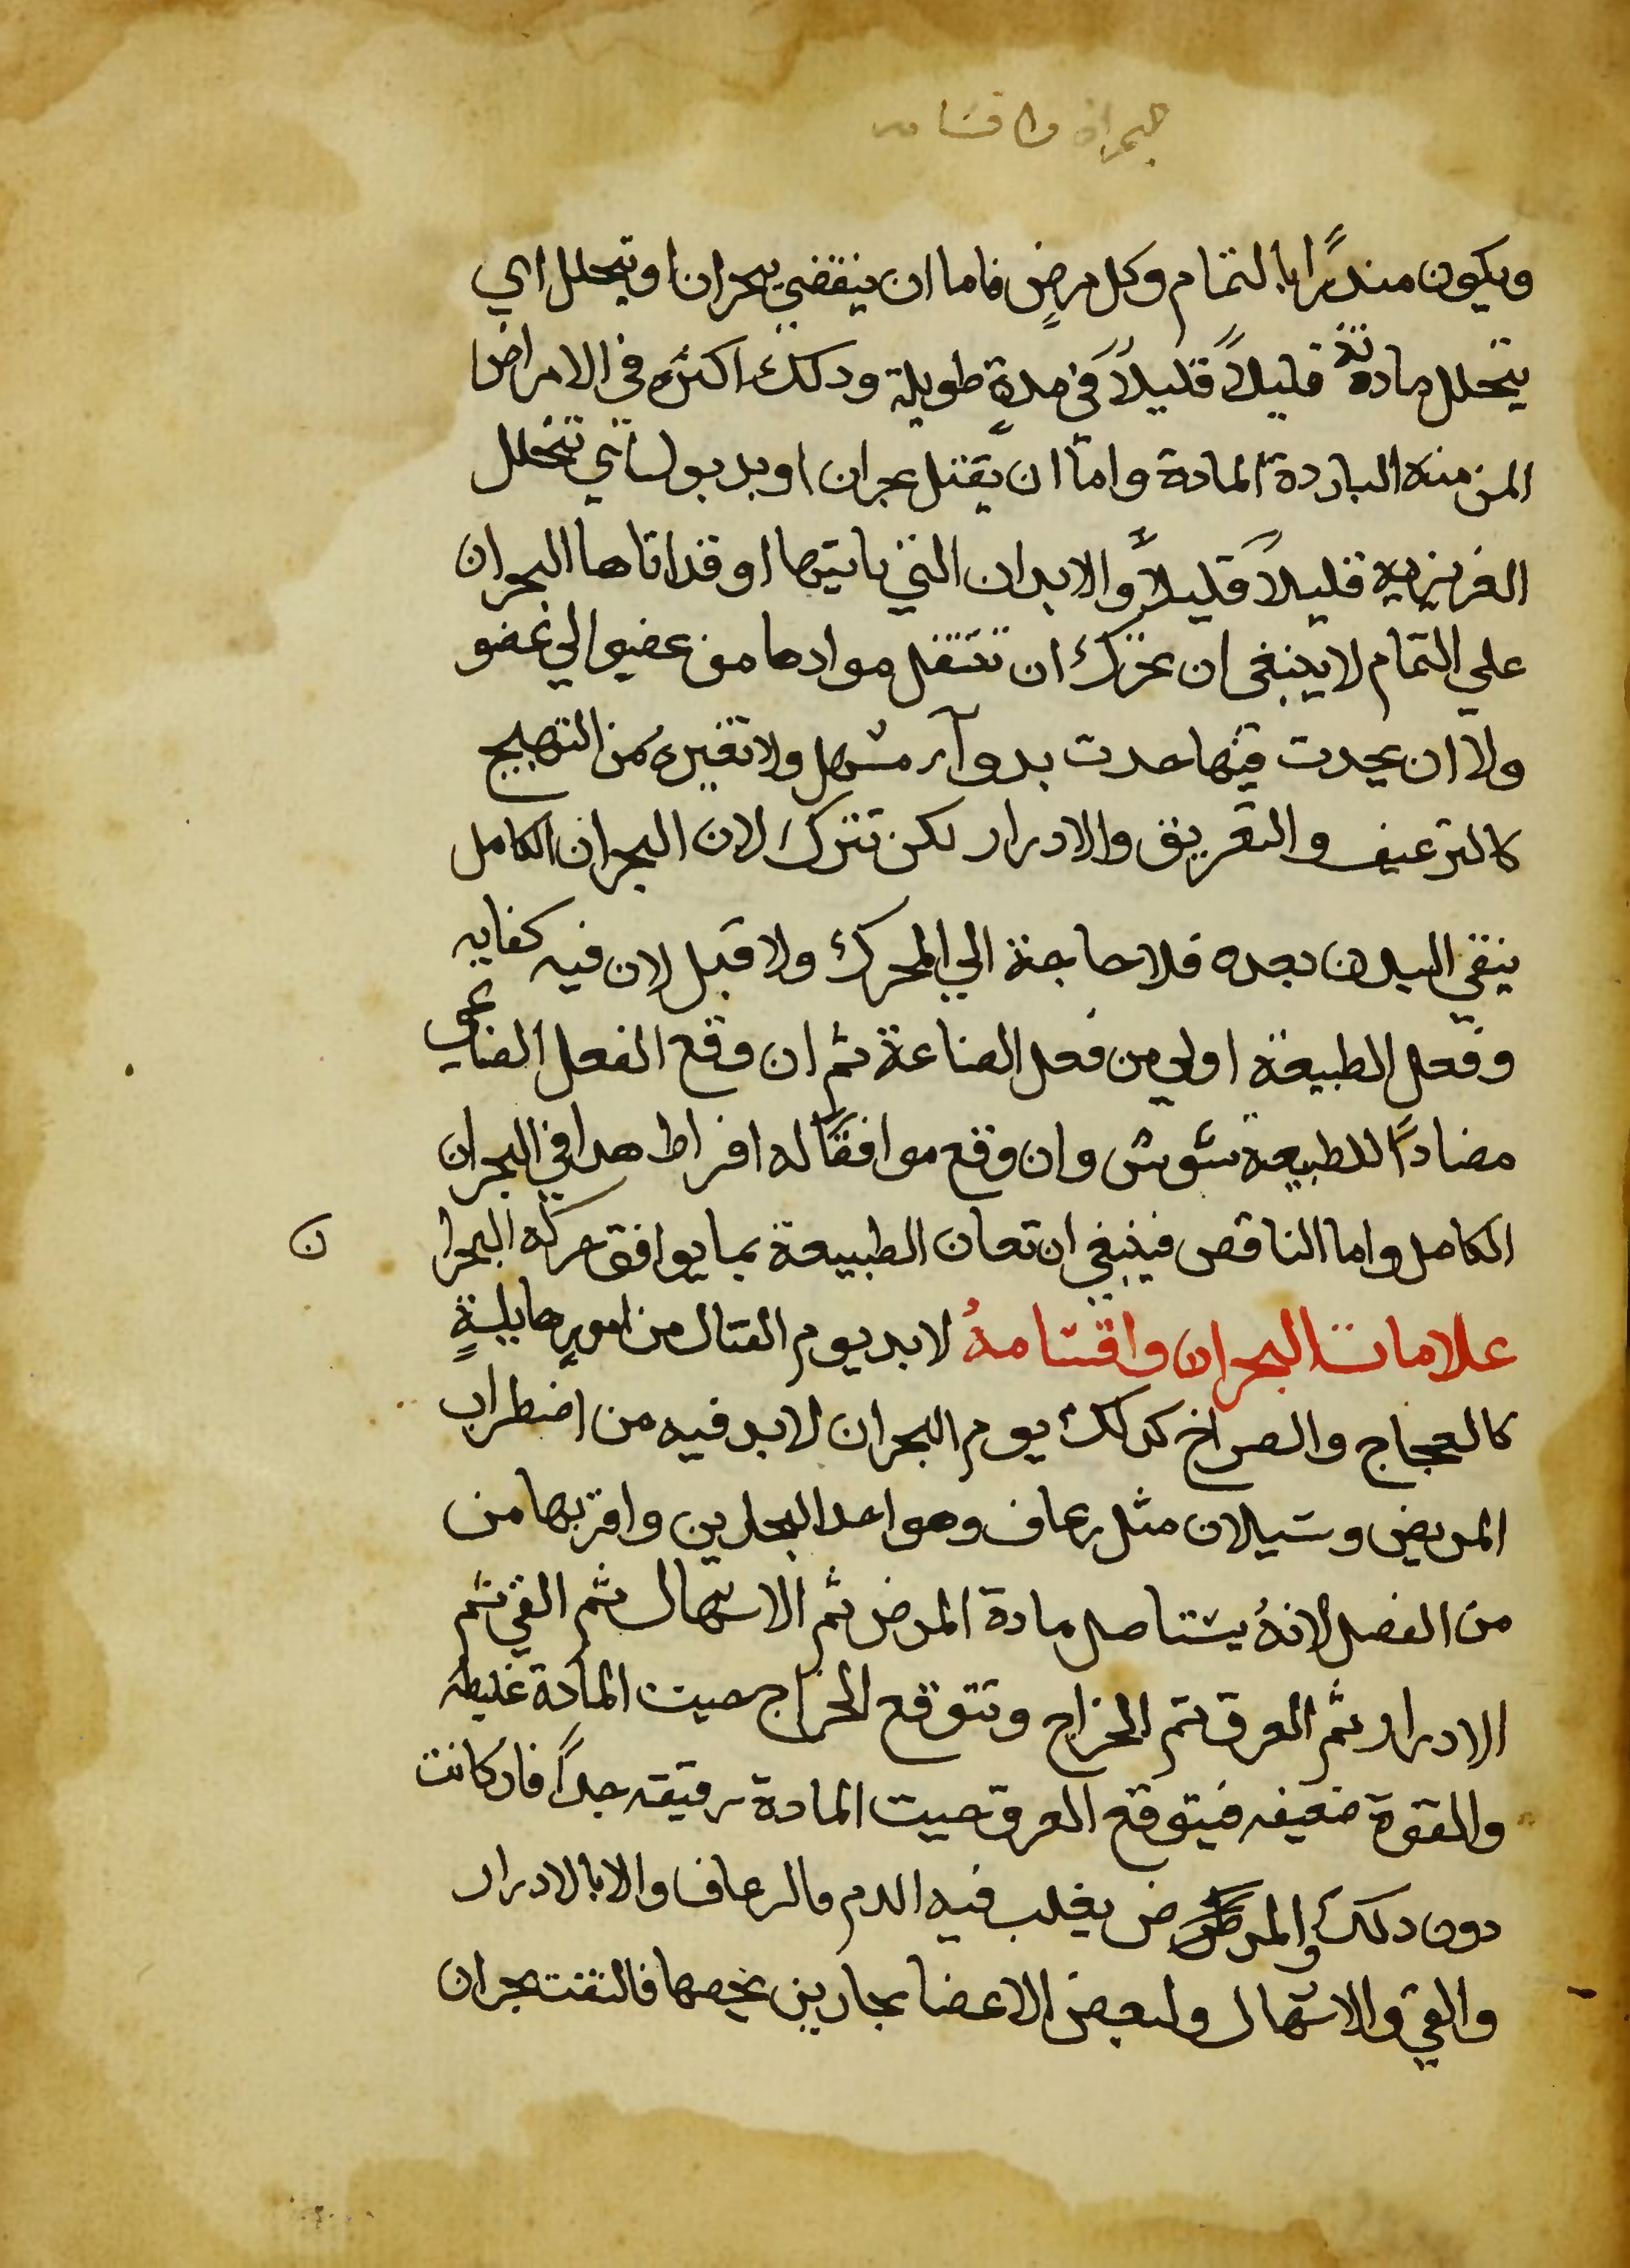 البحران واقسامه
ويكون منذرًا بالتمام وكل مرضٍ فاما ان ينقضي ببحران او يتحلل اي
يتحلل مادته قليلاً قليلاً في مدةٍ طويلة ودلك اكثره في الامراض
المزمنه الباردة المادة واما ان يقتل بحران او بدبول اي تتحلل
الغريزيه قليلاً قليلاً والابدان التي ياتيها او قد اتاها البحران
علي التمام لا ينبغي ان تحرك ان تنتقل موادها من عضو الي عضو
ولا ان يحدت فيها حدت بدوآء مسهل ولا تغيره من التهييج
كالترعيف والتعريق والادرار لكن تترك لان البحران الكامل
ينقي البدن بعده فلا حاجة الي المحرك ولا قبل لان فيه كفايه
وفعل الطبيعة اولي من فعل الصناعة ثم ان وقع الفعل الصناعي
مضادًا للطبيعة شوش وان وقع موافقًا له افراط هدا في البحران
الكامل واما الناقص فينبغي ان تعان الطبيعة بما يوافق حركة البحرا ن
علامات البحران واقسامهُ لابد يوم القتال من امورٍ هايلةٍ
كالعجاج والصراخ كدلك يوم البحران لابد فيه من اضطراب
المريض وسيلان مثل رعاف وهو احد البحارين واقربها من
من الفصل لانهُ يستاصل مادة المرض ثم الاسهال ثم القي ثم
الادرار ثم العرق ثم الخراج وتتوقع الخراج حيت المادة غليظه
والقوة ضعيفه فيتوقع العرق حيت المادة رقيقه جداً فان كانت
دون دلك والمرض يغلب فيه الدم فالرعاف والا بالادرار
والقي والاسهال ولبعض الاعضا بحارين يخصها فالنفت بحران